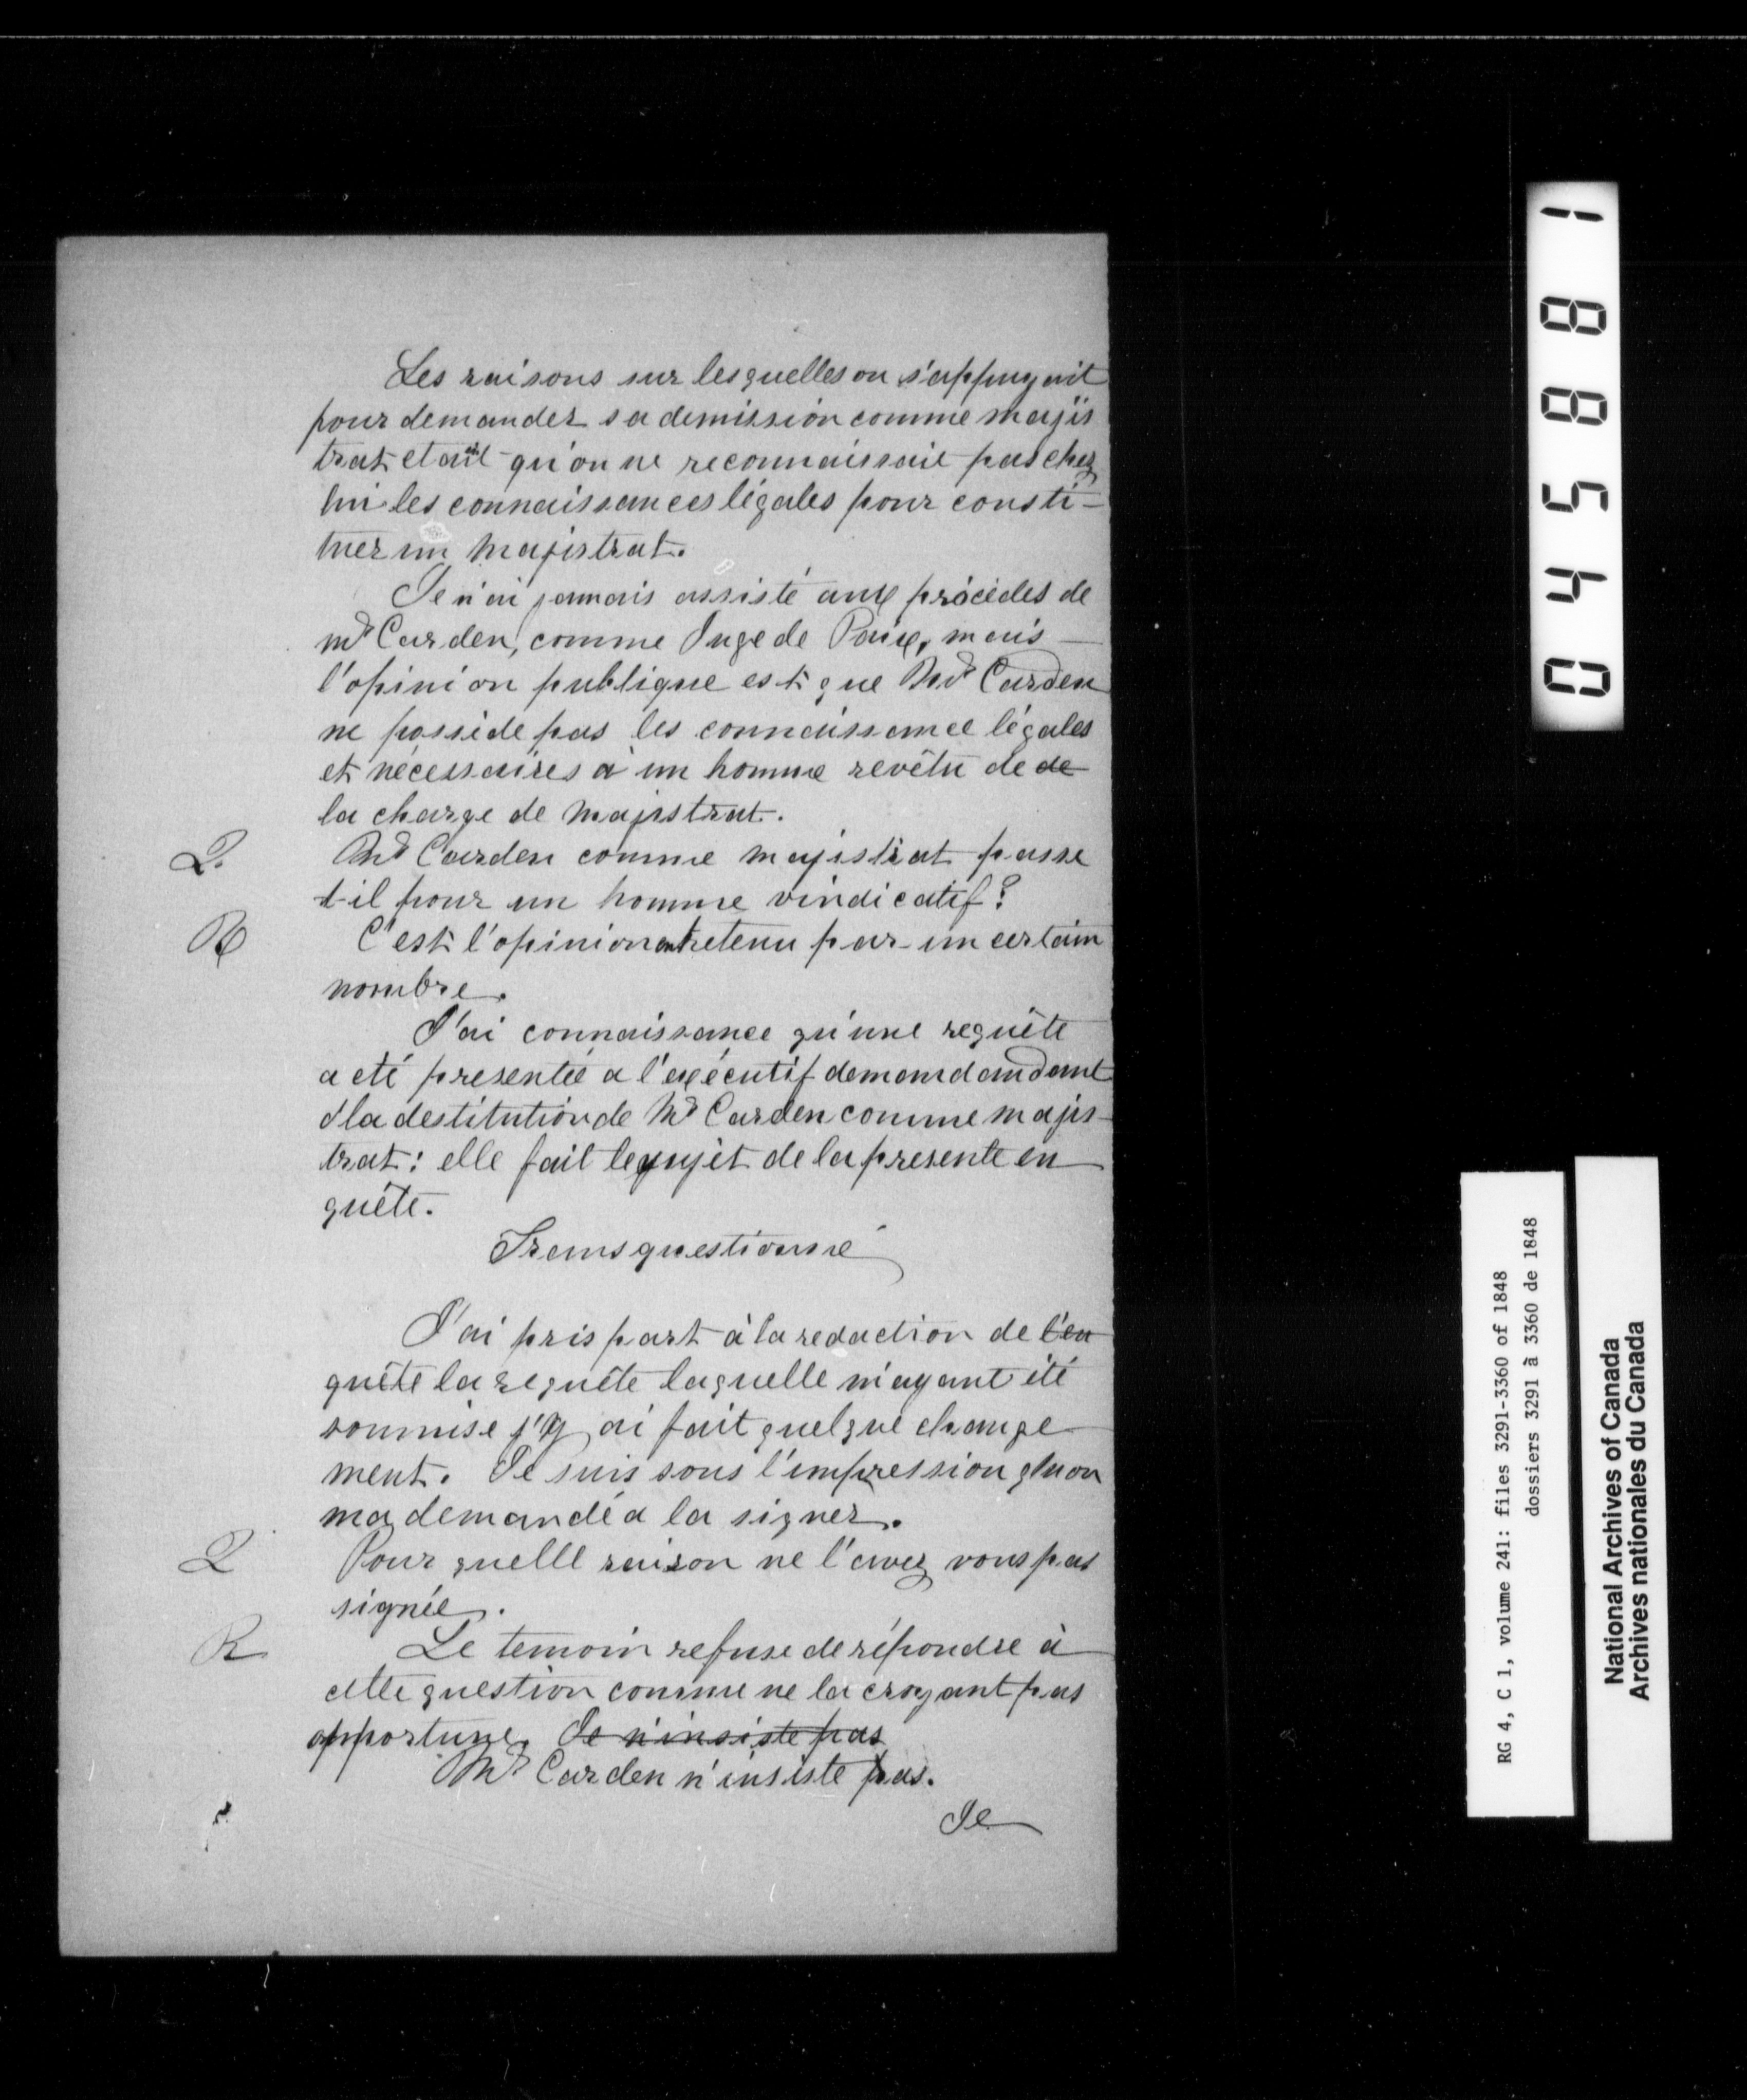 Les raisons sur lesquelles on s'appuyait
pour demander sa demission comme majis
trat etait qu'on ne reconnaissait pas chez
lui les connaissances légales pour consti-
tuer un majistrat.
Je n'ai jamais assisté aux procédés de
Mr Carden, comme Juge de Paix, mais
l'opinion publique est que Mr Carden
ne possède pas les connaissance légales
et nécessaires à un homme revêtu de de
la charge de majistrat.
Q. Mr Carden comme majistrat passe
t-il pour un homme vindicatif?
R C'est l'opinion entretenu par un certain
nombre.
J'ai connaissance qu'une requête
a eté presentée a l'exécutif demandandant
la destitution de Mr Carden comme majis-
trat: elle fait le sujet de la presente en
quête.
Transquestionné
J'ai pris part à la redaction de l'en
quête la requête laquelle m'ayant été
soumise j'y ai fait quelque change
ment. Je suis sous l'impression qu'on
ma demandé a la signer.
Q Pour quelle raison ne l'avez vous pas
signée.
R Le temoin refuse de répondre à
cette question comme ne la croyant pas
opportune. Je n'insiste pas
Mr Carden n'insiste pas.
Je
045881
RG 4, C 1, volume 241: files 3291-3360 of 1848
dossiers 3291 à 3360 de 1848
National Archives of Canada
Archives nationales du Canada